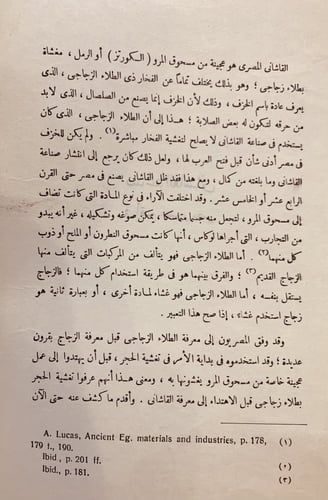 القاشانى المصرى هو عجينة من مسحوق المرو (السكورتز) أو الرمل، مغشاة
بطلاء زجاجى؛ وهو بذلك يختلف تماما عن الفخار ذى الطلاء الزجاجى، الذى
يعرف عادة باسم الخزف، وذلك لأن الخزف إنما يصنع من الصلصال، الذى لابد
من حرقه لتكون له بعض الصلابة؛ هذا إلى أن الطلاء الزجاجى، الذى كان
يستخدم فى صناعة القاشانى لا يصلح لتغشية الفخار مباشرة(١). ولم يكن للخزف
فى مصر أدنى شأن قبل فتح العرب لها، ولعل ذلك كان يرجع إلى انتشار صناعة
القاشانى وما بلغته من كمال، ومع هذا فقد ظل القاشانى يصنع فى مصر حتى القرن
الرابع عشر أو الخامس عشر. وقد اختلفت الآراء فى نوع المادة التى كانت تضاف
إلى مسحوق المرو، لتجعل منه جسما متماسكا، يمكن صوغه وتشكيله، غير أنه يبدو
من التجارب، التى أجراها لوكاس، أنها كانت مسحوق النطرون أو الملح أو ذوب
كل منهما(٢). أما الطلاء الزجاجى فهو يتألف من المركبات التى يتألف منها
الزجاج القديم(٣)؛ والفرق بينهما هو فى طريقة استخدام كل منهما؛ فالزجاج
يستقل بنفسه، أما الطلاء الزجاجى فهو غشاء لمادة أخرى، أو بعبارة ثانية هو
زجاج استخدم غشاء، إذا صح هذا التعبير.
وقد وفق المصريون إلى معرفة الطلاء الزجاجى قبل معرفة الزجاج بقرون
عديدة؛ وقد استخدموه فى بداية الأمر فى تغشية الحجر، قبل أن يهتدوا إلى عمل
عجينة خاصة من مسحوق المرو يغشونها به، ومعنى هذا أنهم عرفوا تغشية الحجر
بطلاء زجاجى قبل الاهتداء إلى معرفة القاشانى. وأقدم ما كشف عنه حتى الآن
A. Lucas, Ancient Eg. materials and industries, p. 178, (١)
179 f., 190.
Ibid, p. 201 ff. (٢)
Ibid., p. 181. (٣)